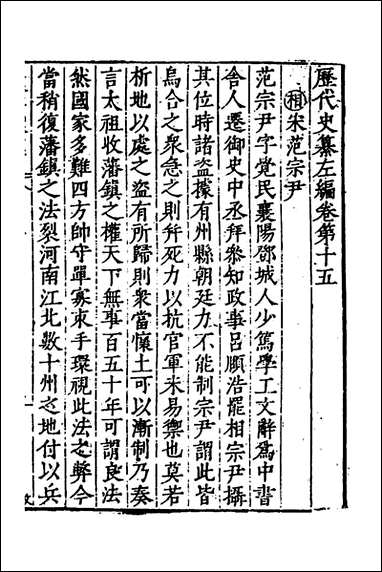 歷代史纂左編卷第十五
相宋范宗尹
范宗尹字覺民襄陽鄧城人少篤學工文辭爲中書
舍人遷御史中丞拜參知政事呂頤浩罷相宗尹攝
其位時諸盗據有州縣朝廷力不能制宗尹謂此皆
烏合之衆急之則幷死力以抗官軍未易禦也莫若
析地以處之盗有所歸則衆當懷土可以漸制乃奏
言太祖收藩鎮之權天下無事百五十年可謂良法
然國家多難四方帥守單寡束手環視此法之弊今
當稍復藩鎮之法裂河南江北數十州之地付以兵